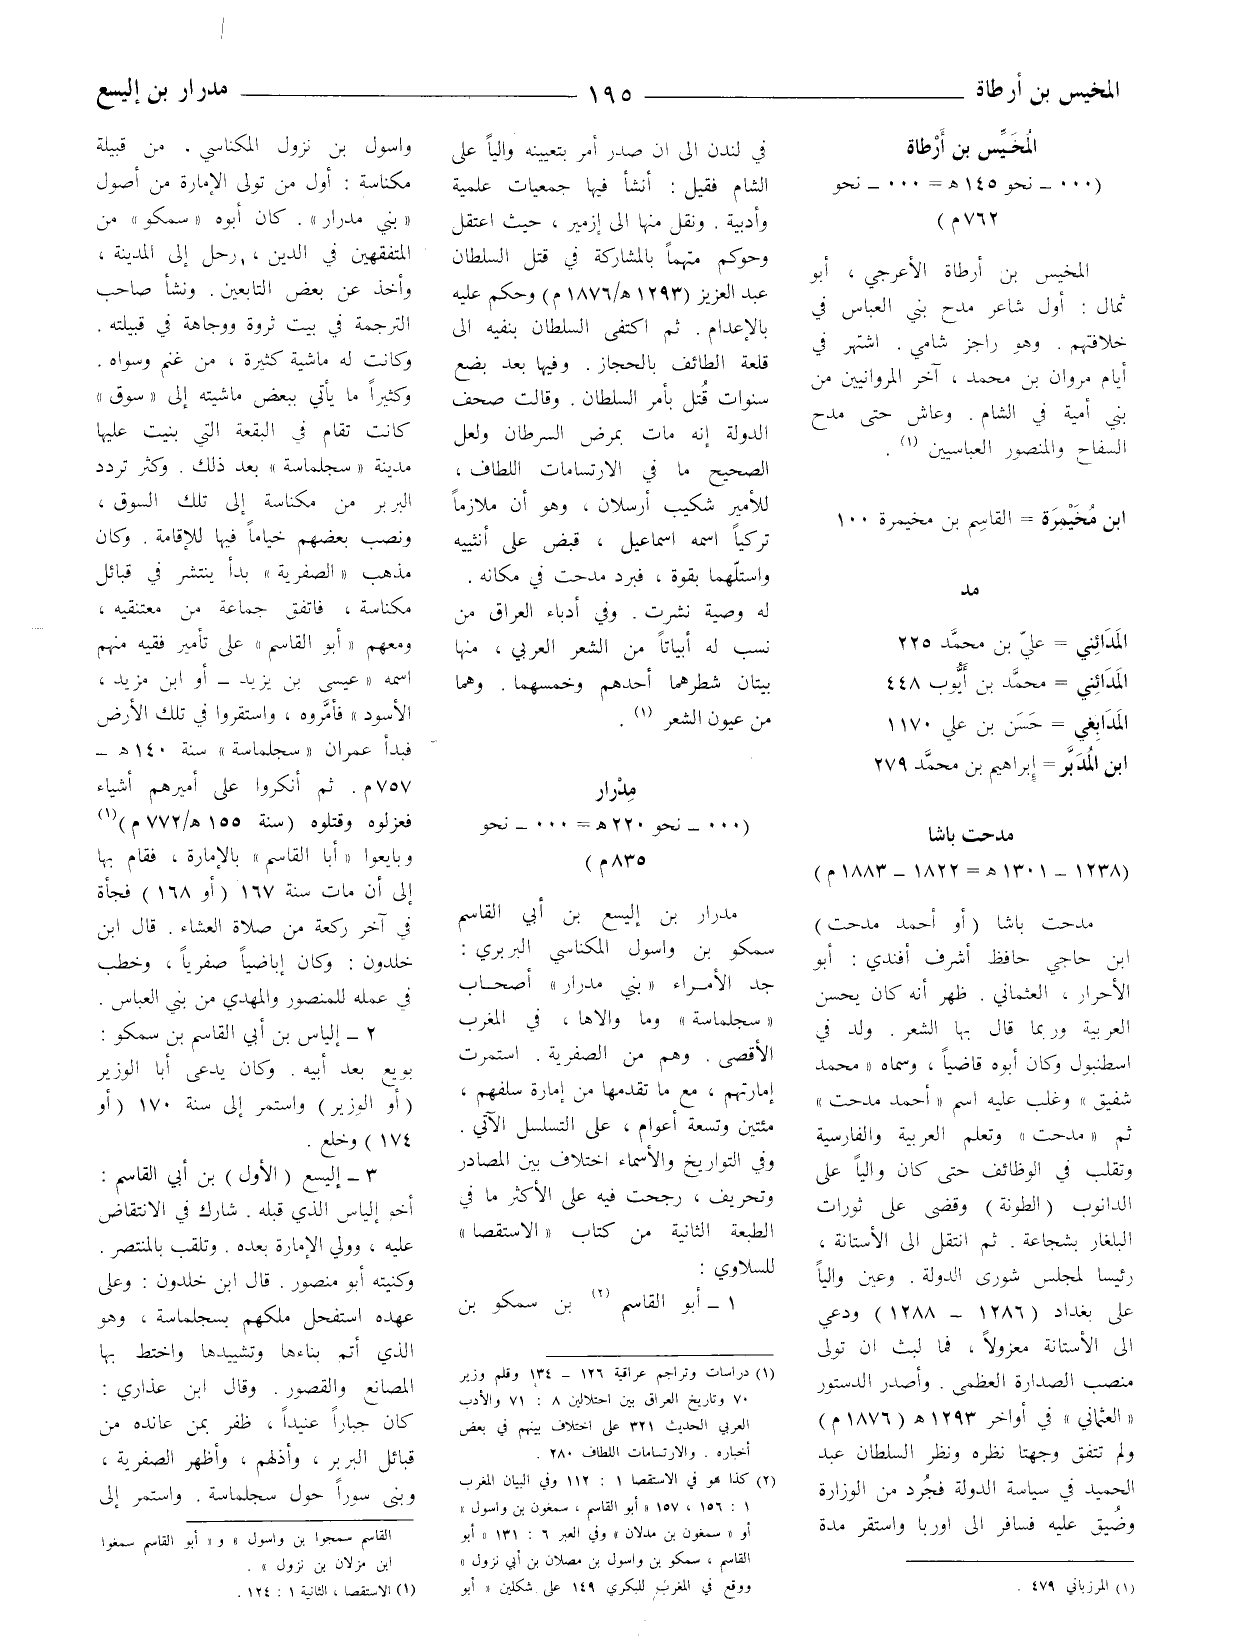 المخيس بن أرطاة
١٩٥
مدرار بن إليسع
المُخَيِّس بن أَرْطاة
(٠٠٠ ــ نحو ١٤٥ ه = ٠٠٠ ــ نحو
٧٦٢ م)
المخيس بن أرطاة الأعرجي ، أبو
ثمال : أول شاعر مدح بني العباس في
خلافتهم . وهو راجز شامي . اشتهر في
أيام مروان بن محمد ، آخر المروانيين من
بني أمية في الشام . وعاش حتى مدح
السفاح والمنصور العباسيين (١) .
ابن مُخَيْمِرَة = القاسِم بن مخيمرة ١٠٠
مد
المَدَائِني = عليّ بن محمَّد ٢٢٥
المَدَائِني = محمَّد بن أَيُّوب ٤٤٨
المَدَابِغي = حَسَن بن علي ١١٧٠
ابن المُدَبَّر = إبراهيم بن محمَّد ٢٧٩
مدحت باشا
(١٢٣٨ ــ ١٣٠١ ه = ١٨٢٢ ــ ١٨٨٣ م)
مدحت باشا (أو أحمد مدحت)
ابن حاجي حافظ أشرف أفندي : أبو
الأحرار ، العثماني . ظهر أنه كان يحسن
العربية وربما قال بها الشعر . ولد في
اسطنبول وكان أبوه قاضياً ، وسماه « محمد
شفيق » وغلب عليه اسم « أحمد مدحت »
ثم « مدحت » وتعلم العربية والفارسية
وتقلب في الوظائف حتى كان والياً على
الدانوب (الطونة) وقضى على ثورات
البلغار بشجاعة . ثم انتقل الى الأستانة ،
رئيسا لمجلس شورى الدولة . وعين والياً
على بغداد (١٢٨٦ ــ ١٢٨٨) ودعي
الى الأستانة معزولاً ، فما لبث ان تولى
منصب الصدارة العظمى . وأصدر الدستور
« العثماني » في أواخر ١٢٩٣ ه (١٨٧٦ م)
ولم تتفق وجهتا نظره ونظر السلطان عبد
الحميد في سياسة الدولة فجُرد من الوزارة
وضُيق عليه فسافر الى اوربا واستقر مدة
(١) المرزباني ٤٧٩ .
في لندن الى ان صدر أمر بتعيينه والياً على
الشام فقيل : أنشأ فيها جمعيات علمية
وأدبية . ونقل منها الى إزمير ، حيث اعتقل
وحوكم متهماً بالمشاركة في قتل السلطان
عبد العزيز (١٢٩٣ ه/١٨٧٦ م) وحكم عليه
بالإعدام . ثم اكتفى السلطان بنفيه الى
قلعة الطائف بالحجاز . وفيها بعد بضع
سنوات قُتل بأمر السلطان . وقالت صحف
الدولة إنه مات بمرض السرطان ولعل
الصحيح ما في الارتسامات اللطاف ،
للأمير شكيب أرسلان ، وهو أن ملازماً
تركياً اسمه اسماعيل ، قبض على أنثييه
واستلّهما بقوة ، فبرد مدحت في مكانه .
له وصية نشرت . وفي أدباء العراق من
نسب له أبياتاً من الشعر العربي ، منها
بيتان شطرهما أحدهم وخمسهما . وهما
من عيون الشعر (١) .
مِدْرار
(٠٠٠ ــ نحو ٢٢٠ ه = ٠٠٠ ــ نحو
٨٣٥ م)
مدرار بن إليسع بن أبي القاسم
سمكو بن واسول المكناسي البربري :
جد الأمــراء « بني مدرار » أصحــاب
« سجلماسة » وما والاها ، في المغرب
الأقصى . وهم من الصفرية . استمرت
إمارتهم ، مع ما تقدمها من إمارة سلفهم ،
مئتين وتسعة أعوام ، على التسلسل الآتي .
وفي التواريخ والأسماء اختلاف بين المصادر
وتحريف ، رجحت فيه على الأكثر ما في
الطبعة الثانية من كتاب « الاستقصا »
للسلاوي :
١ ــ أبو القاسم (٢) بن سمكو بن
(١) دراسات وتراجم عراقية ١٢٦ ــ ١٣٤ وقلم وزير
٧٠ وتاريخ العراق بين احتلالين ٨ : ٧١ والأدب
العربي الحديث ٣٢١ على اختلاف بينهم في بعض
أخباره . والارتسامات اللطاف ٢٨٠ .
(٢) كذا هو في الاستقصا ١ : ١١٢ وفي البيان المغرب
١ : ١٥٦ ، ١٥٧ « أبو القاسم ، سمغون بن واسول »
أو « سمغون بن مدلان » وفي العبر ٦ : ١٣١ « أبو
القاسم ، سمكو بن واسول بن مصلان بن أبي نزول »
ووقع في المغرب للبكري ١٤٩ على شكلين « أبو
واسول بن نزول المكناسي . من قبيلة
مكناسة : أول من تولى الإمارة من أصول
« بني مدرار » . كان أبوه « سمكو » من
المتفقهين في الدين ، رحل إلى المدينة ،
وأخذ عن بعض التابعين . ونشأ صاحب
الترجمة في بيت ثروة ووجاهة في قبيلته .
وكانت له ماشية كثيرة ، من غنم وسواه .
وكثيراً ما يأتي ببعض ماشيته إلى « سوق »
كانت تقام في البقعة التي بنيت عليها
مدينة « سجلماسة » بعد ذلك . وكثر تردد
البربر من مكناسة إلى تلك السوق ،
ونصب بعضهم خياماً فيها للإقامة . وكان
مذهب « الصفرية » بدأ ينتشر في قبائل
مكناسة ، فاتفق جماعة من معتنقيه ،
ومعهم « أبو القاسم » على تأمير فقيه منهم
اسمه « عيسى بن يزيد ــ أو ابن مزيد ،
الأسود » فأمَّروه ، واستقروا في تلك الأرض
فبدأ عمران « سجلماسة » سنة ١٤٠ ه ــ
٧٥٧ م . ثم أنكروا على أميرهم أشياء
فعزلوه وقتلوه (سنة ١٥٥ ه/٧٧٢ م)(١)
وبايعوا « أبا القاسم » بالإمارة ، فقام بها
إلى أن مات سنة ١٦٧ (أو ١٦٨) فجأة
في آخر ركعة من صلاة العشاء . قال ابن
خلدون : وكان إباضياً صفرياً ، وخطب
في عمله للمنصور والمهدي من بني العباس .
٢ ــ إلياس بن أبي القاسم بن سمكو :
بويع بعد أبيه . وكان يدعى أبا الوزير
(أو الوزير) واستمر إلى سنة ١٧٠ (أو
١٧٤) وخلع .
٣ ــ إليسع (الأول) بن أبي القاسم :
أخو إلياس الذي قبله . شارك في الانتقاض
عليه ، وولي الإمارة بعده . وتلقب بالمنتصر .
وكنيته أبو منصور . قال ابن خلدون : وعلى
عهده استفحل ملكهم بسجلماسة ، وهو
الذي أتم بناءها وتشييدها واختط بها
المصانع والقصور . وقال ابن عذاري :
كان جباراً عنيداً ، ظفر بمن عانده من
قبائل البربر ، وأذلهم ، وأظهر الصفرية ،
وبنى سوراً حول سجلماسة . واستمر إلى
القاسم سمجوا بن واسول » و « أبو القاسم سمغوا
ابن مزلان بن نزول » .
(١) الاستقصا ، الثانية ١ : ١٢٤ .